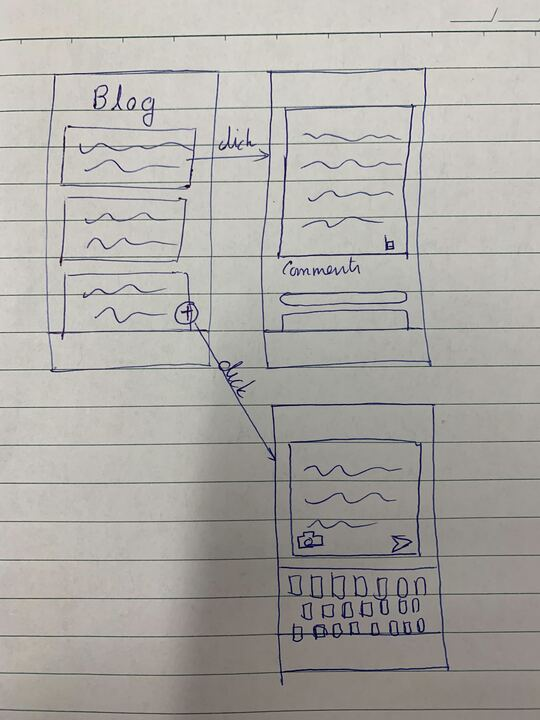 Blog
click
Comments
click